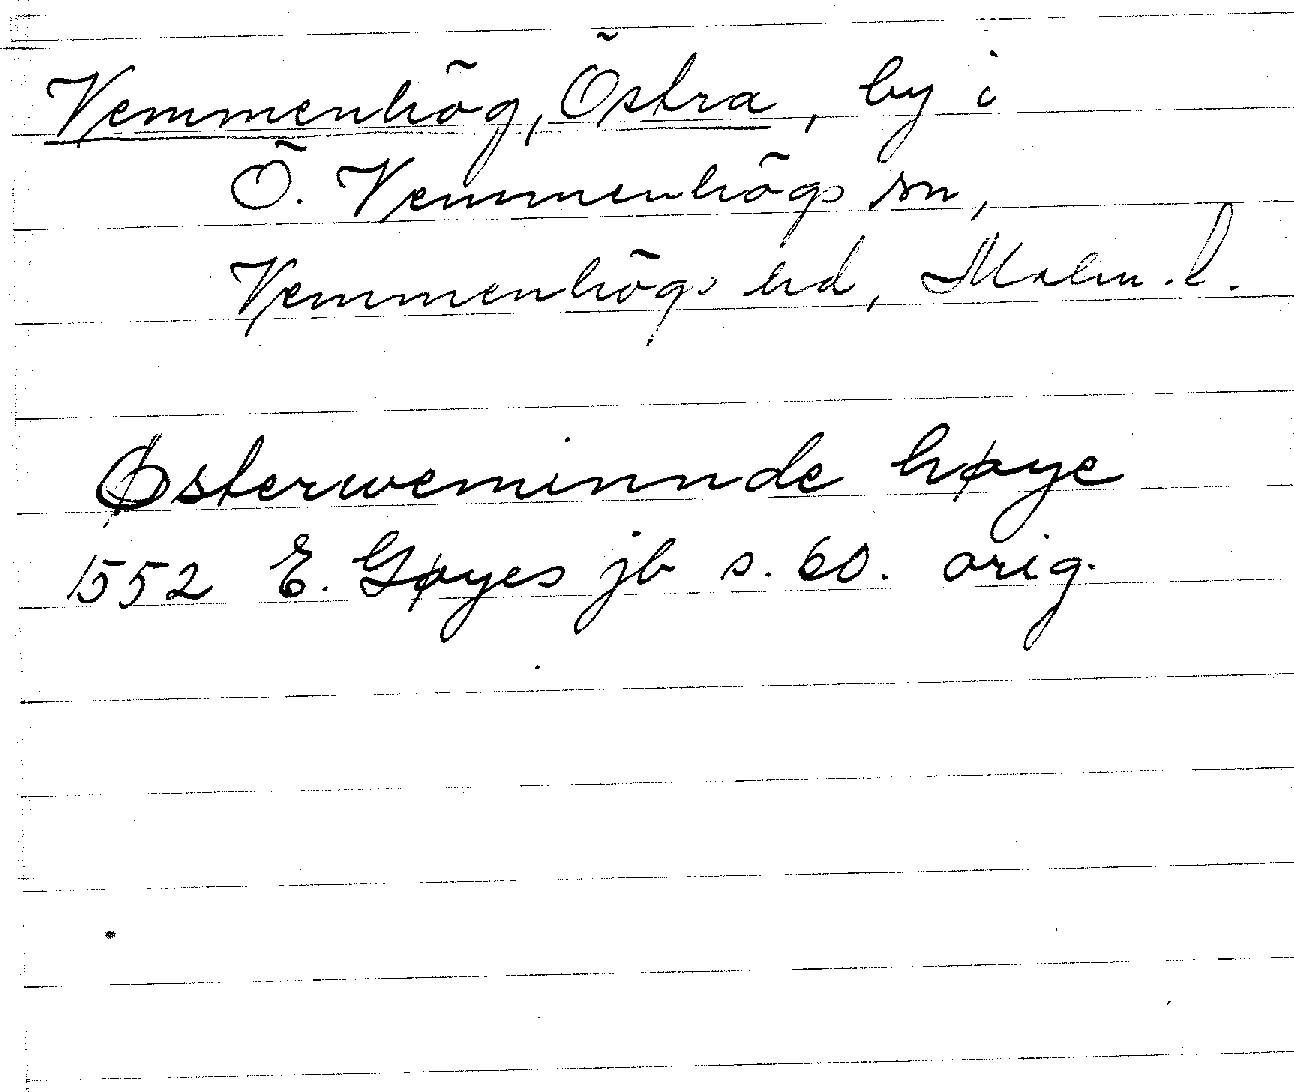 Vemmenhög, Östra, by i
Ö. Vemmenhögs sn,
Vemmenhögs hd, Malm. l.
Østerweminnde høye
1552 E. Gøyes jb s. 60. orig.